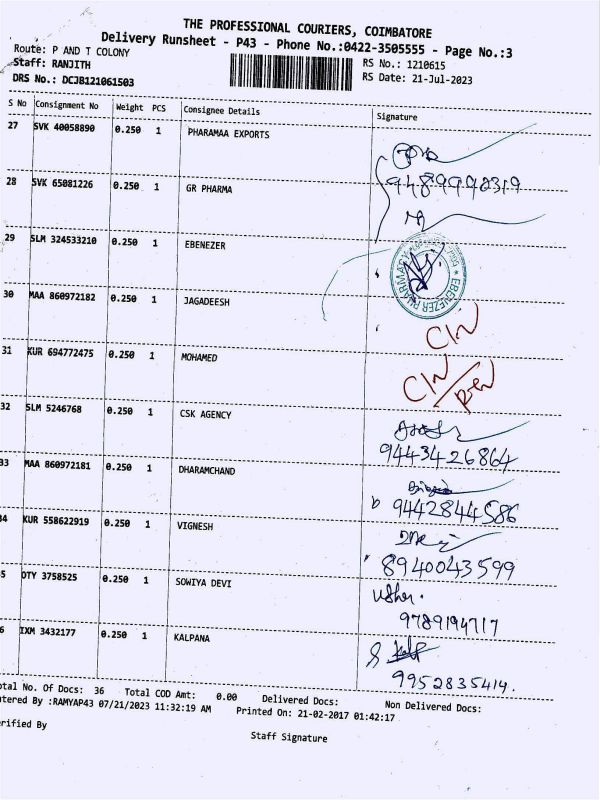 THE PROFESSIONAL COURIERS, COIMBATORE
Delivery Runsheet - P43 - Phone No.:0422-3505555 - Page No.:3
Route: P AND T COLONY
Staff: RANJITH
DRS No.: DCJB121061503
RS No.: 1210615
RS Date: 21-Jul-2023
S No Consignment No Weight PCS Consignee Details Signature
27 SVK 40058890 0.250 1 PHARAMAA EXPORTS
9489990319
28 SVK 65081226 0.250 1 GR PHARMA
29 SLM 324533210 0.250 1 EBENEZER
EBENEZER PHARMACY
30 MAA 860972182 0.250 1 JAGADEESH
31 KUR 694772475 0.250 1 MOHAMED
32 SLM 5246768 0.250 1 CSK AGENCY
9443426864
33 MAA 860972181 0.250 1 DHARAMCHAND
9442844586
34 KUR 558622919 0.250 1 VIGNESH
8940043599
5 OTY 3758525 0.250 1 SOWIYA DEVI
Usha.
9789194717
6 IXM 3432177 0.250 1 KALPANA
9952835414.
otal No. Of Docs: 36 Total COD Amt: 0.00 Delivered Docs: Non Delivered Docs:
tered By :RAMYAP43 07/21/2023 11:32:19 AM Printed On: 21-02-2017 01:42:17
erified By Staff Signature